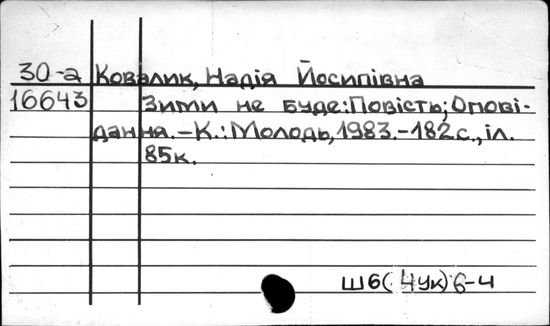 30-а Ковалик, Надія Йосипівна
16643 Зими не буде: Повість; Опові-
дання. – К.: Молодь, 1983. – 182 с., іл.
85к.
Ш6(4Ук)6-4